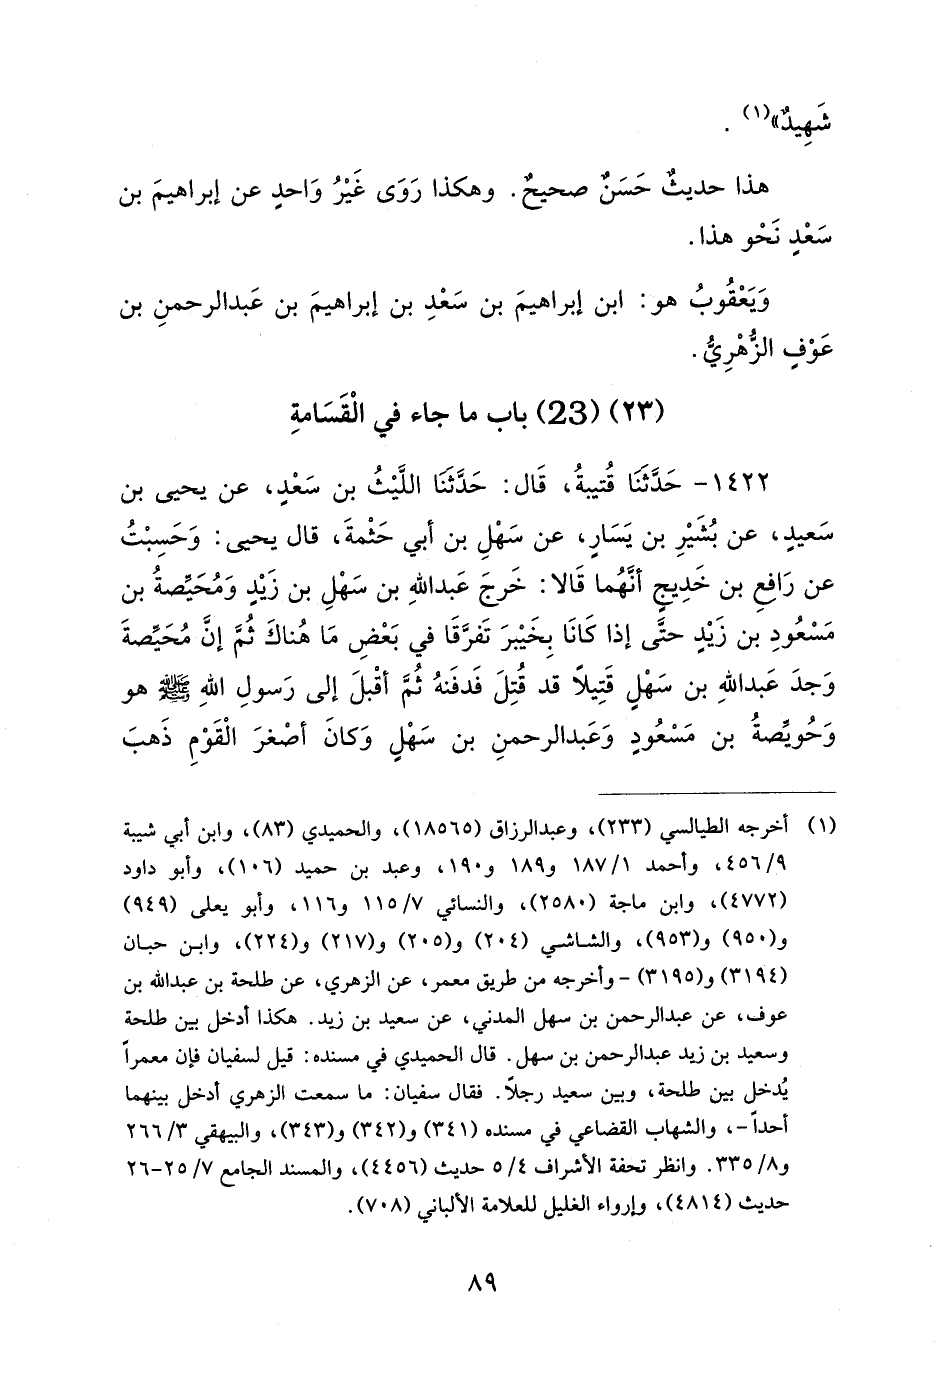 شَهِيدٌ»(١) .
هذا حديثٌ حَسَنٌ صحيحٌ. وهكذا رَوَى غَيْرُ وَاحدٍ عن إبراهيمَ بن
سَعْدٍ نَحْو هذا.
وَيَعْقُوبُ هو: ابن إبراهيمَ بن سَعْدِ بن إبراهيمَ بن عَبدالرحمنِ بن
عَوْفٍ الزُّهْرِيُّ.
(٢٣) (23) باب ما جاء في الْقَسَامةِ
١٤٢٢- حَدَّثَنَا قُتيبةُ، قَال: حَدَّثَنَا اللَّيْثُ بن سَعْدٍ، عن يحيى بن
سَعيدٍ، عن بُشَيْرِ بن يَسَارٍ، عن سَهْلِ بن أبي حَثْمةَ، قال يحيى: وَحَسِبْتُ
عن رَافعِ بن خَدِيجٍ أنَّهُما قَالا: خَرجَ عَبدالله بن سَهْلِ بن زَيْدٍ وَمُحَيِّصةُ بن
مَسْعُودِ بن زَيْدٍ حتَّى إذا كَانَا بِخَيْبرَ تَفرَّقَا في بَعْضِ مَا هُناكَ ثُمَّ إنَّ مُحَيِّصةَ
وَجدَ عَبدالله بن سَهْلٍ قَتِيلاً قد قُتِلَ فَدفنَهُ ثُمَّ أقْبلَ إلى رَسولِ اللهِ ﷺ هو
وَحُويِّصةُ بن مَسْعُودٍ وَعَبدالرحمنِ بن سَهْلٍ وَكانَ أصْغرَ الْقَوْمِ ذَهبَ
(١) أخرجه الطيالسي (٢٣٣)، وعبدالرزاق (١٨٥٦٥)، والحميدي (٨٣)، وابن أبي شيبة
٤٥٦/٩، وأحمد ١٨٧/١ و١٨٩ و١٩٠، وعبد بن حميد (١٠٦)، وأبو داود
(٤٧٧٢)، وابن ماجة (٢٥٨٠)، والنسائي ١١٥/٧ و١١٦، وأبو يعلى (٩٤٩)
و(٩٥٠) و(٩٥٣)، والشاشي (٢٠٤) و(٢٠٥) و(٢١٧) و(٢٢٤)، وابن حبان
(٣١٩٤) و(٣١٩٥) -وأخرجه من طريق معمر، عن الزهري، عن طلحة بن عبدالله بن
عوف، عن عبدالرحمن بن سهل المدني، عن سعيد بن زيد. هكذا أدخل بين طلحة
وسعيد بن زيد عبدالرحمن بن سهل. قال الحميدي في مسنده: قيل لسفيان فإن معمراً
يُدخل بين طلحة، وبين سعيد رجلاً. فقال سفيان: ما سمعت الزهري أدخل بينهما
أحداً-، والشهاب القضاعي في مسنده (٣٤١) و(٣٤٢) و(٣٤٣)، والبيهقي ٢٦٦/٣
و٣٣٥/٨. وانظر تحفة الأشراف ٥/٤ حديث (٤٤٥٦)، والمسند الجامع ٢٥/٧-٢٦
حديث (٤٨١٤)، وإرواء الغليل للعلامة الألباني (٧٠٨).
٨٩